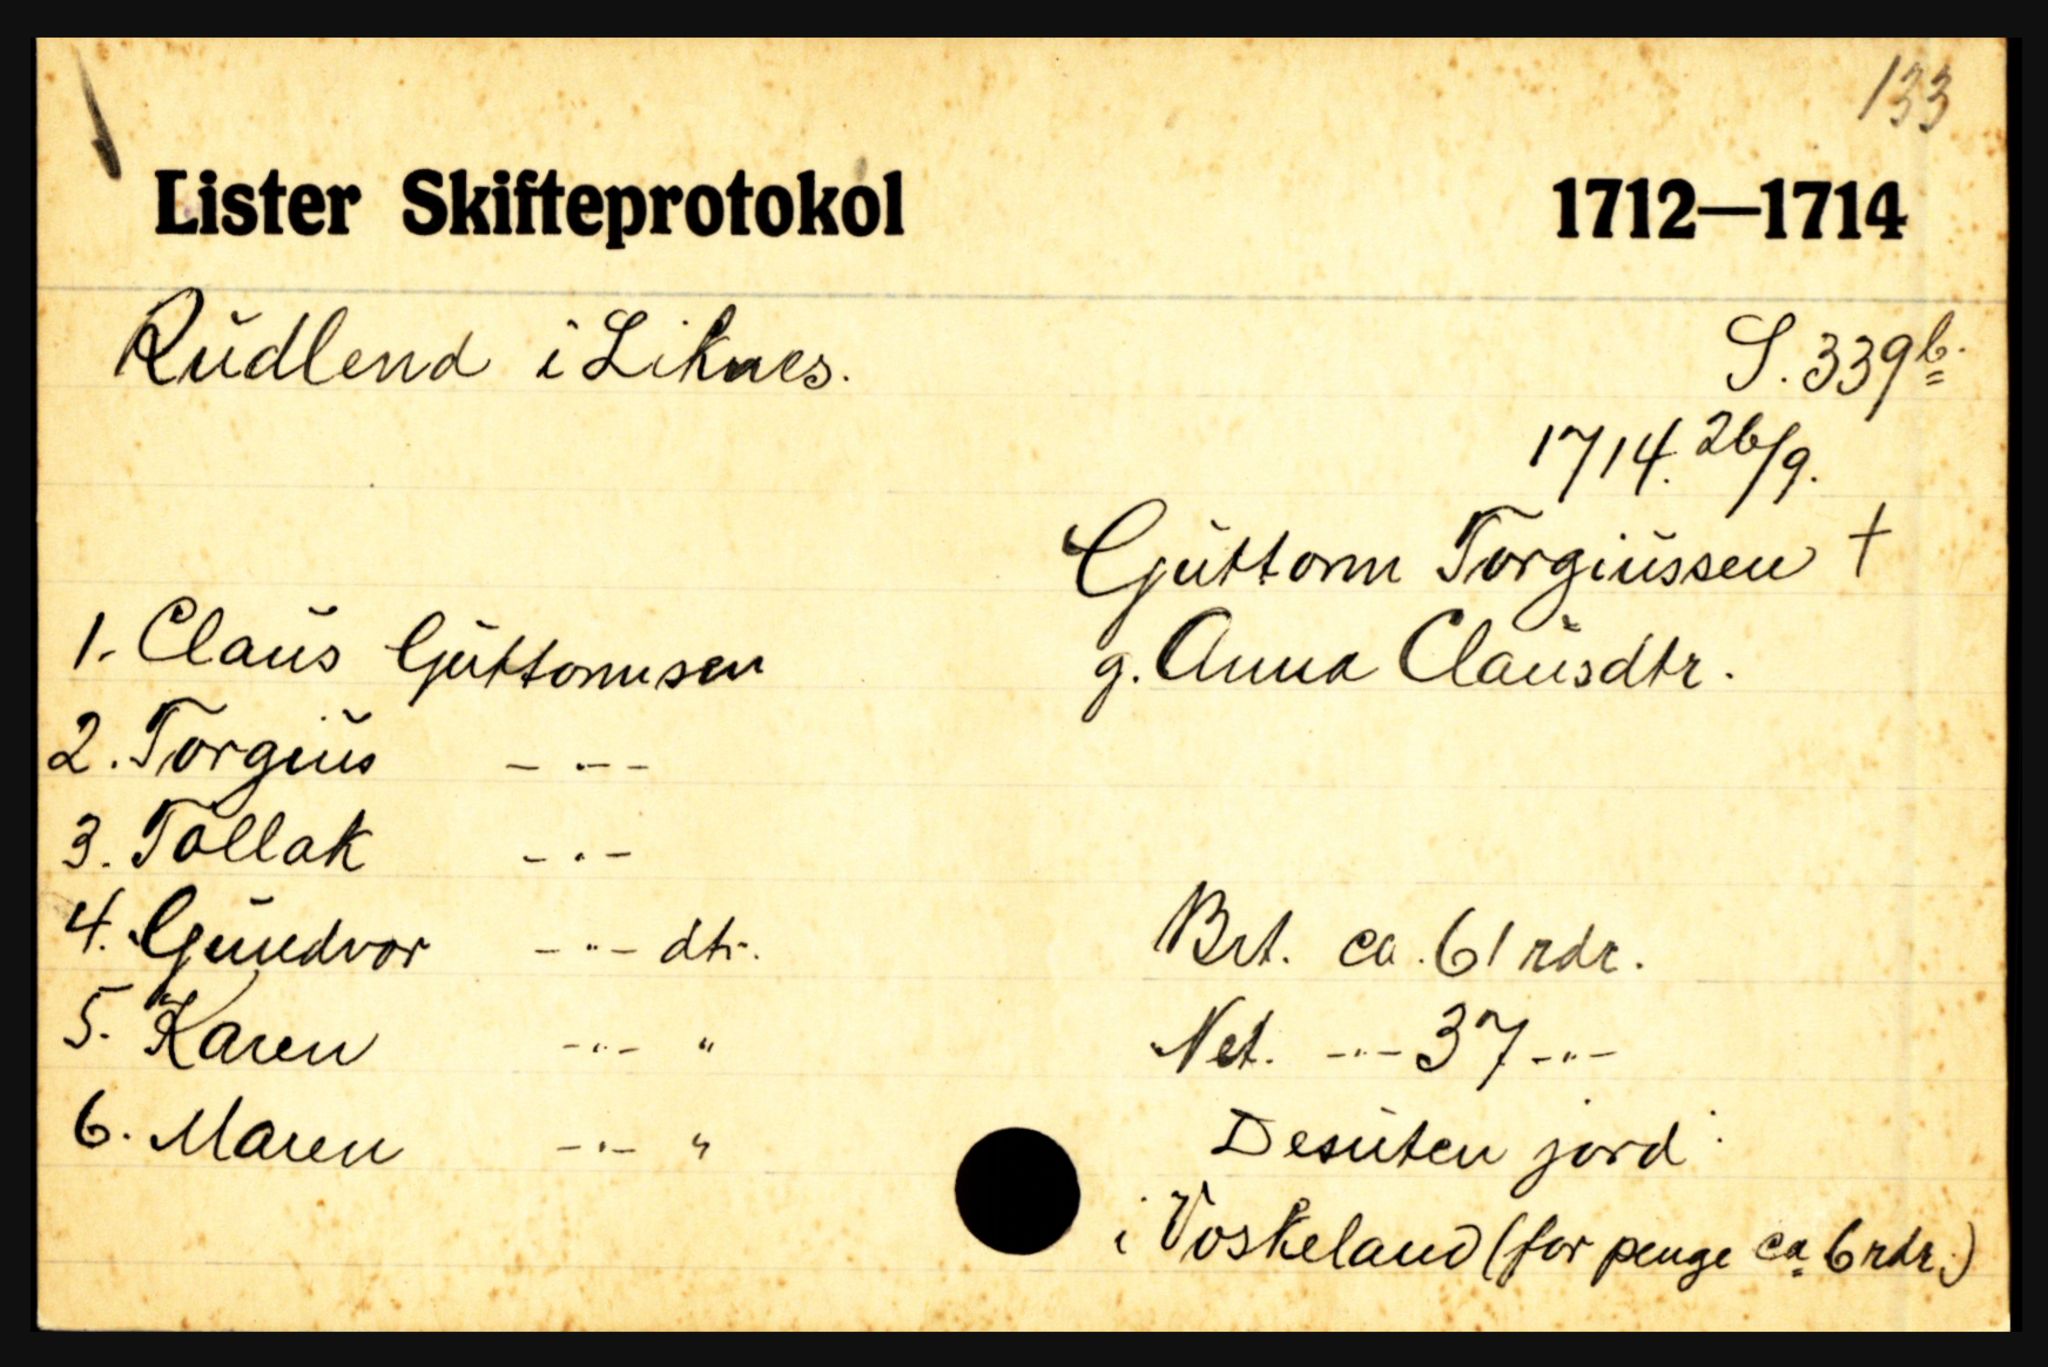 133
Lister Skifteprotokol 1712—1714
Rudlend i Liknes. S. 339b.
1714. 26/9.
Guttorm Torgiussen †
g. Anna Clausdtr.
1. Claus Guttormsen
2. Torgius - " -
3. Tollak - " -
4. Gundvor - " - dtr.
5. Karen - " - "
6. Maren - " - "
Brt. ca. 61 rdr.
Net. - " - 37 - " -
Desuten jord
i Voskeland (for penge ca 6 rdr.)